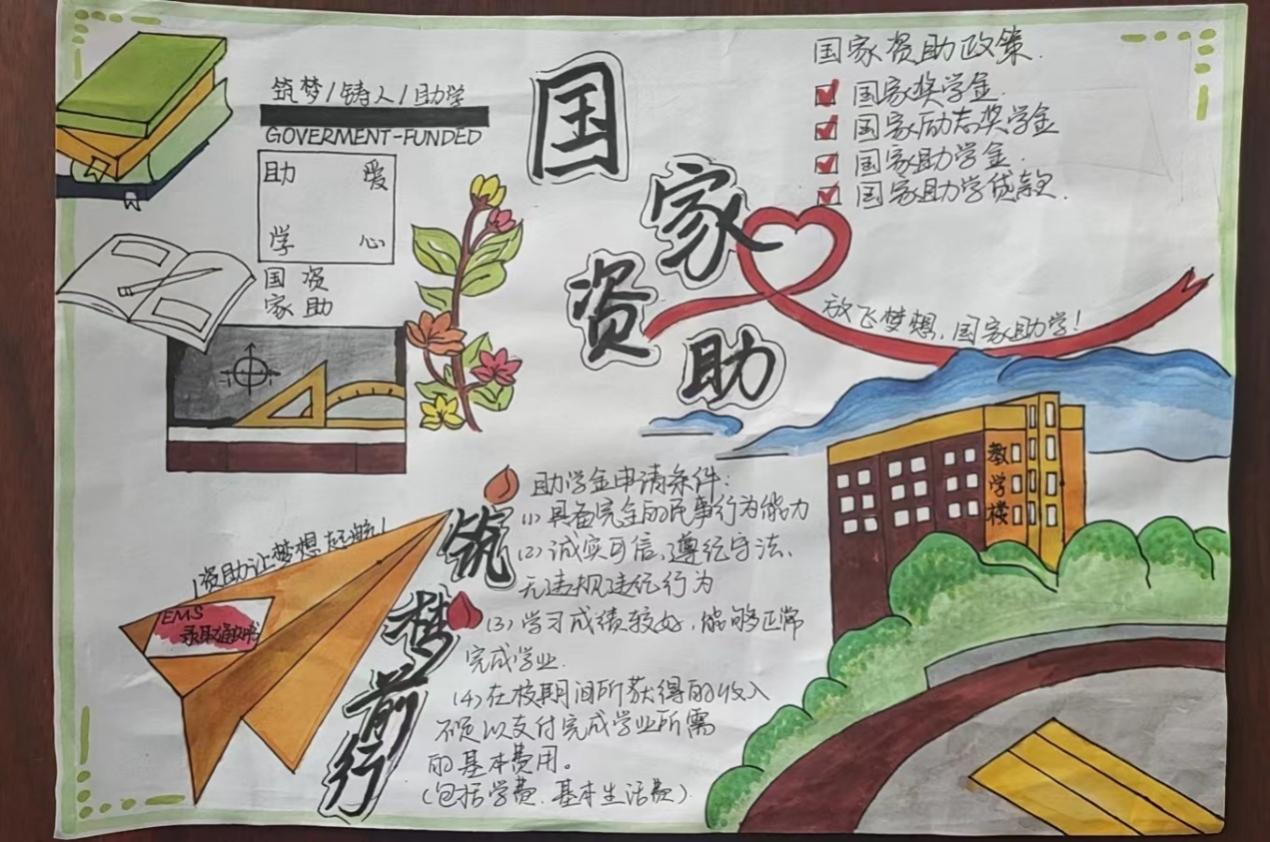 筑梦/铸人/助学
GOVERMENT-FUNDED
助 爱
学 心
国 资
家 助
国家资助
国家资助政策.
国家奖学金.
国家励志奖学金
国家助学金.
国家助学贷款.
放飞梦想,国家助学!
教学楼
资助让梦想起航!
EMS
录取通知书
筑梦前行
助学金申请条件:
(1)具备完全的民事行为能力
(2)诚实可信,遵纪守法、
无违规违纪行为
(3)学习成绩较好,能够正常
完成学业.
(4)在校期间所获得的收入
不足以支付完成学业所需
的基本费用。
(包括学费、基本生活费)